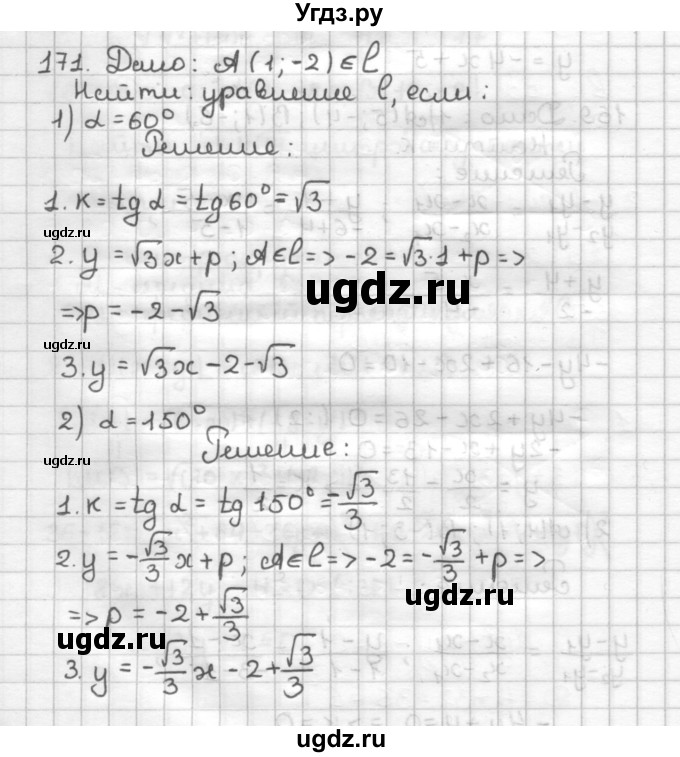 Угдз.ру
171. Дано: A (1; -2) ∈ l
Найти: уравнение l, если:
1) α = 60°
Решение:
1. к = tg α = tg 60° = √3
ugdz.ru
2. y = √3x + p; A ∈ l => -2 = √3·1 + p =>
ugdz.ru
=> p = -2 - √3
ugdz.ru
3. y = √3x - 2 - √3
2) α = 150°
Решение:
ugdz.ru
1. к = tg α = tg 150° = -√3/3
2. y = -√3/3 x + p; A ∈ l => -2 = -√3/3 + p =>
ugdz.ru
=> p = -2 + √3/3
ugdz.ru
3. y = -√3/3 x - 2 + √3/3
ugdz.ru